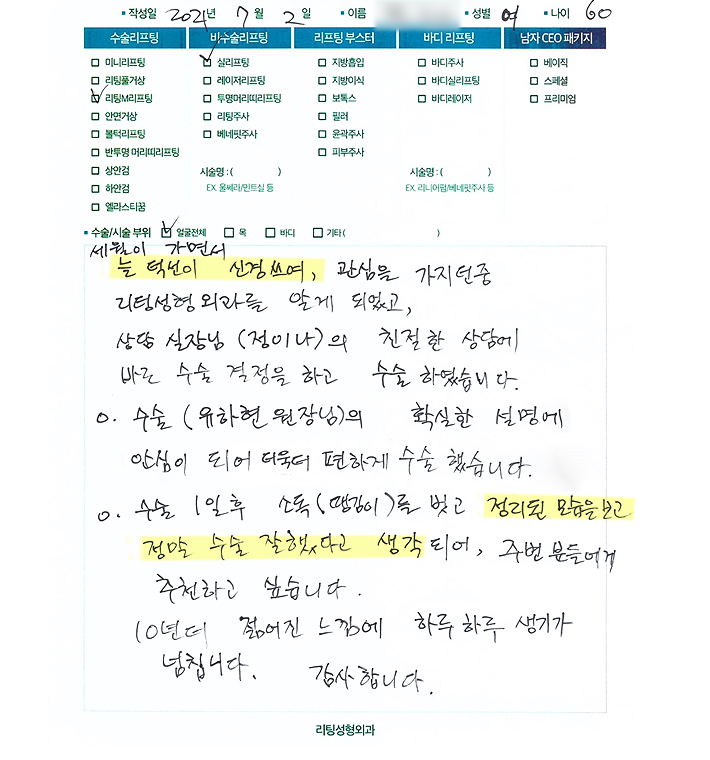 작성일 2021년 7월 2일 이름 성별 여 나이 60
수술리프팅 비수술리프팅 리프팅 부스터 바디 리프팅 남자 CEO 패키지
미니리프팅 실리프팅 지방흡입 바디주사 베이직
리팅풀거상 레이저리프팅 지방이식 바디실리프팅 스페셜
리팅M리프팅 투명머리띠리프팅 보톡스 바디레이저 프리미엄
안면거상 리팅주사 필러
볼턱리프팅 베네핏주사 윤곽주사
반투명 머리띠리프팅 피부주사
상안검 시술명 : ( ) 시술명 : ( )
하안검 EX. 울쎄라/민트실 등 EX. 리니어펌/베네핏주사 등
엘라스티꿈
수술/시술 부위 얼굴전체 목 바디 기타 ( )
세월이 가면서
늘 턱선이 신경쓰여, 관심을 가지던중
리팅성형외과를 알게 되었고,
상담 실장님 (정이나)의 친절한 상담에
바로 수술 결정을 하고 수술 하였습니다.
o. 수술 (유하현 원장님)의 확실한 설명에
안심이 되어 더욱더 편하게 수술 했습니다.
o. 수술 1일후 소독(땡김이)를 벗고 정리된 모습을보고
정말 수술 잘했다고 생각되어, 주변 분들에게
추천하고 싶습니다.
10년더 젊어진 느낌에 하루하루 생기가
넘칩니다. 감사합니다.
리팅성형외과